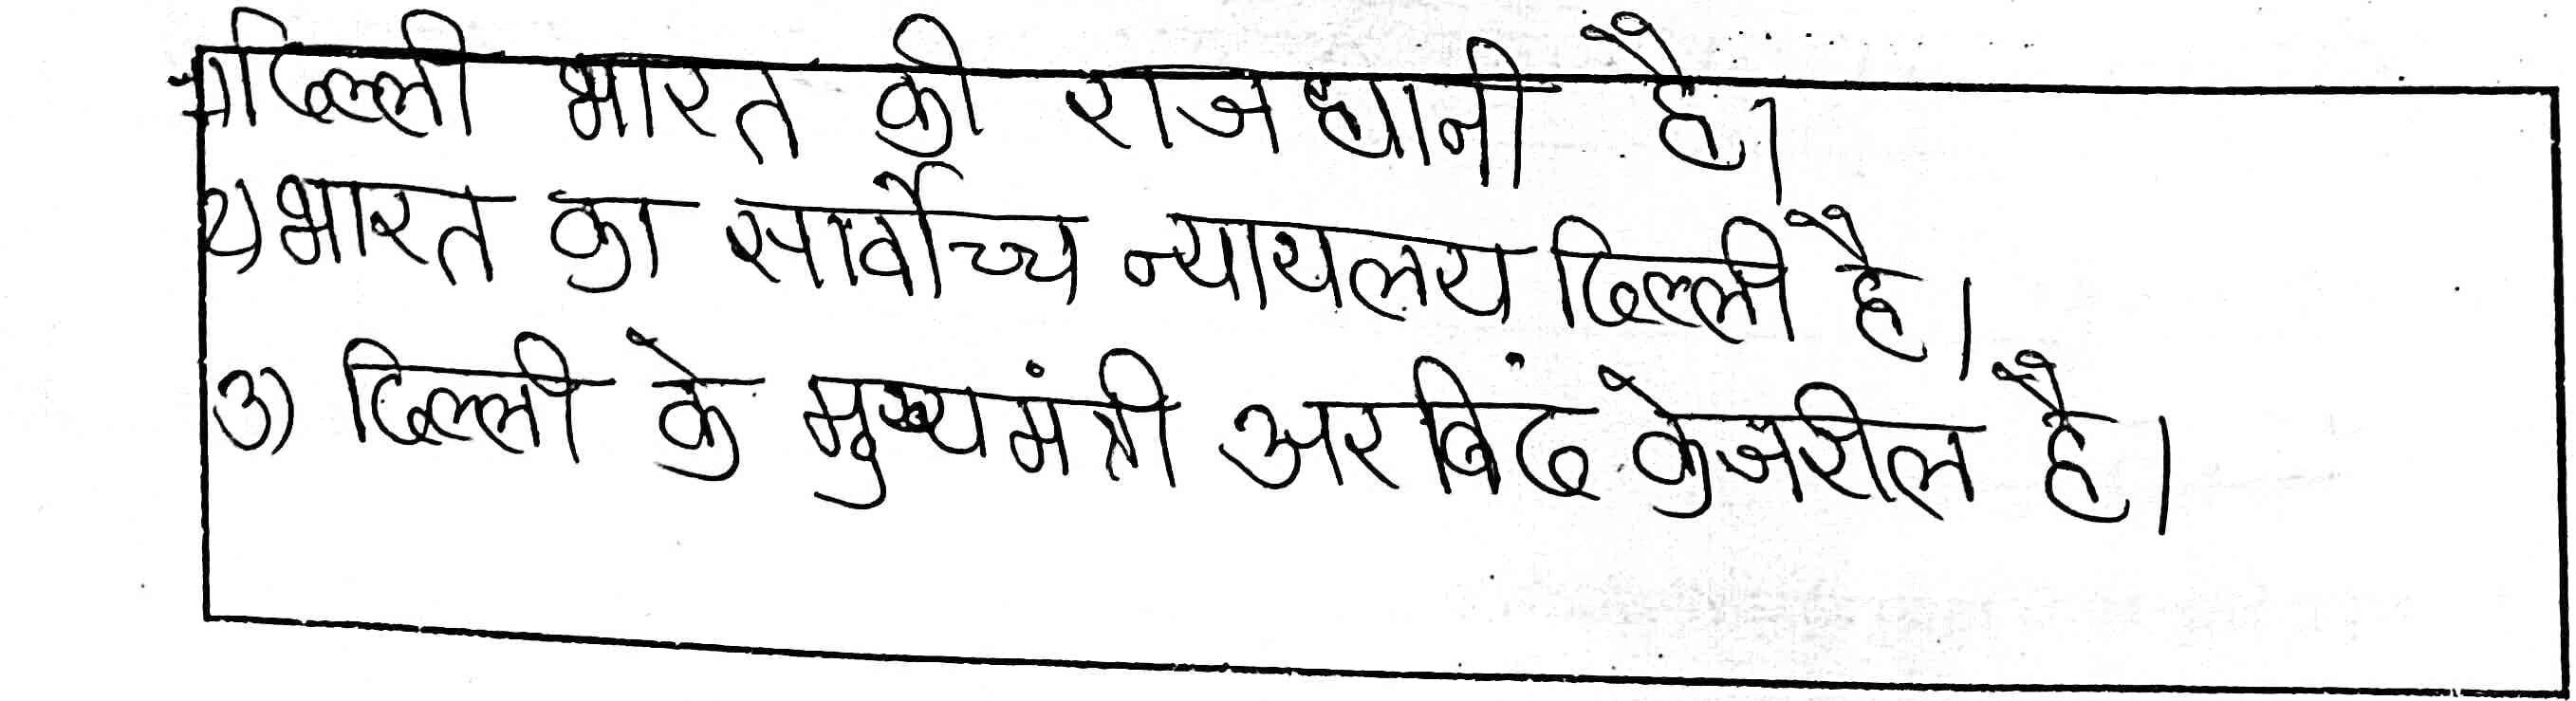 1) दिल्ली भारत की राजधानी है।
2) भारत का सार्वोच्च न्यायलय दिल्ली है।
3) दिल्ली के मुख्यमंत्री अरविंद केजरील है।